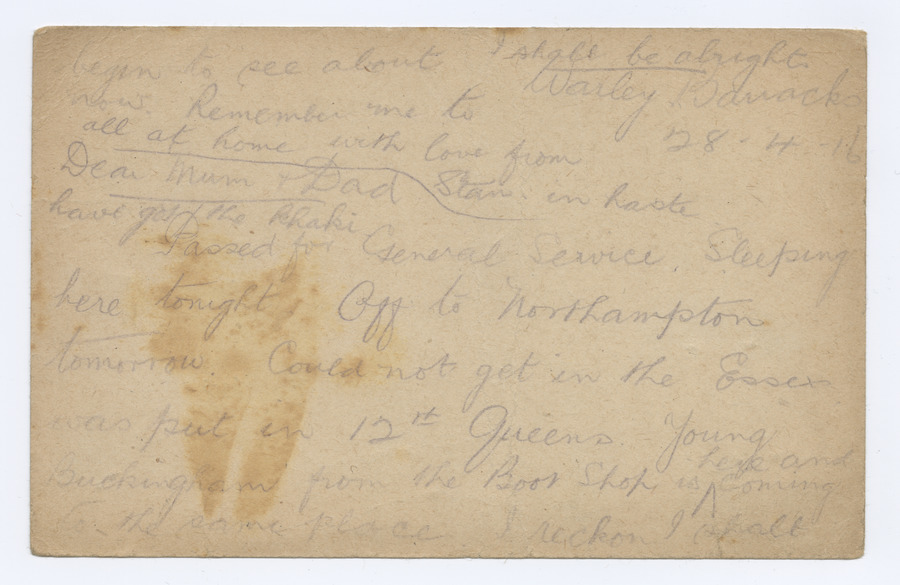 I shall be alright
Warley Barracks
28 - 4 - 16
Dear Mum & Dad
have got the khaki
Passed for General Service. Sleeping
here tonight. Off to Northampton
tomorrow. Could not get in the Essex
was put in 12th Queens. Young
Buckingham from the Boot Shop is here and coming
to the same place. I reckon I shall
begin to see about
now. Remember me to
all at home with love from
Stan. in haste